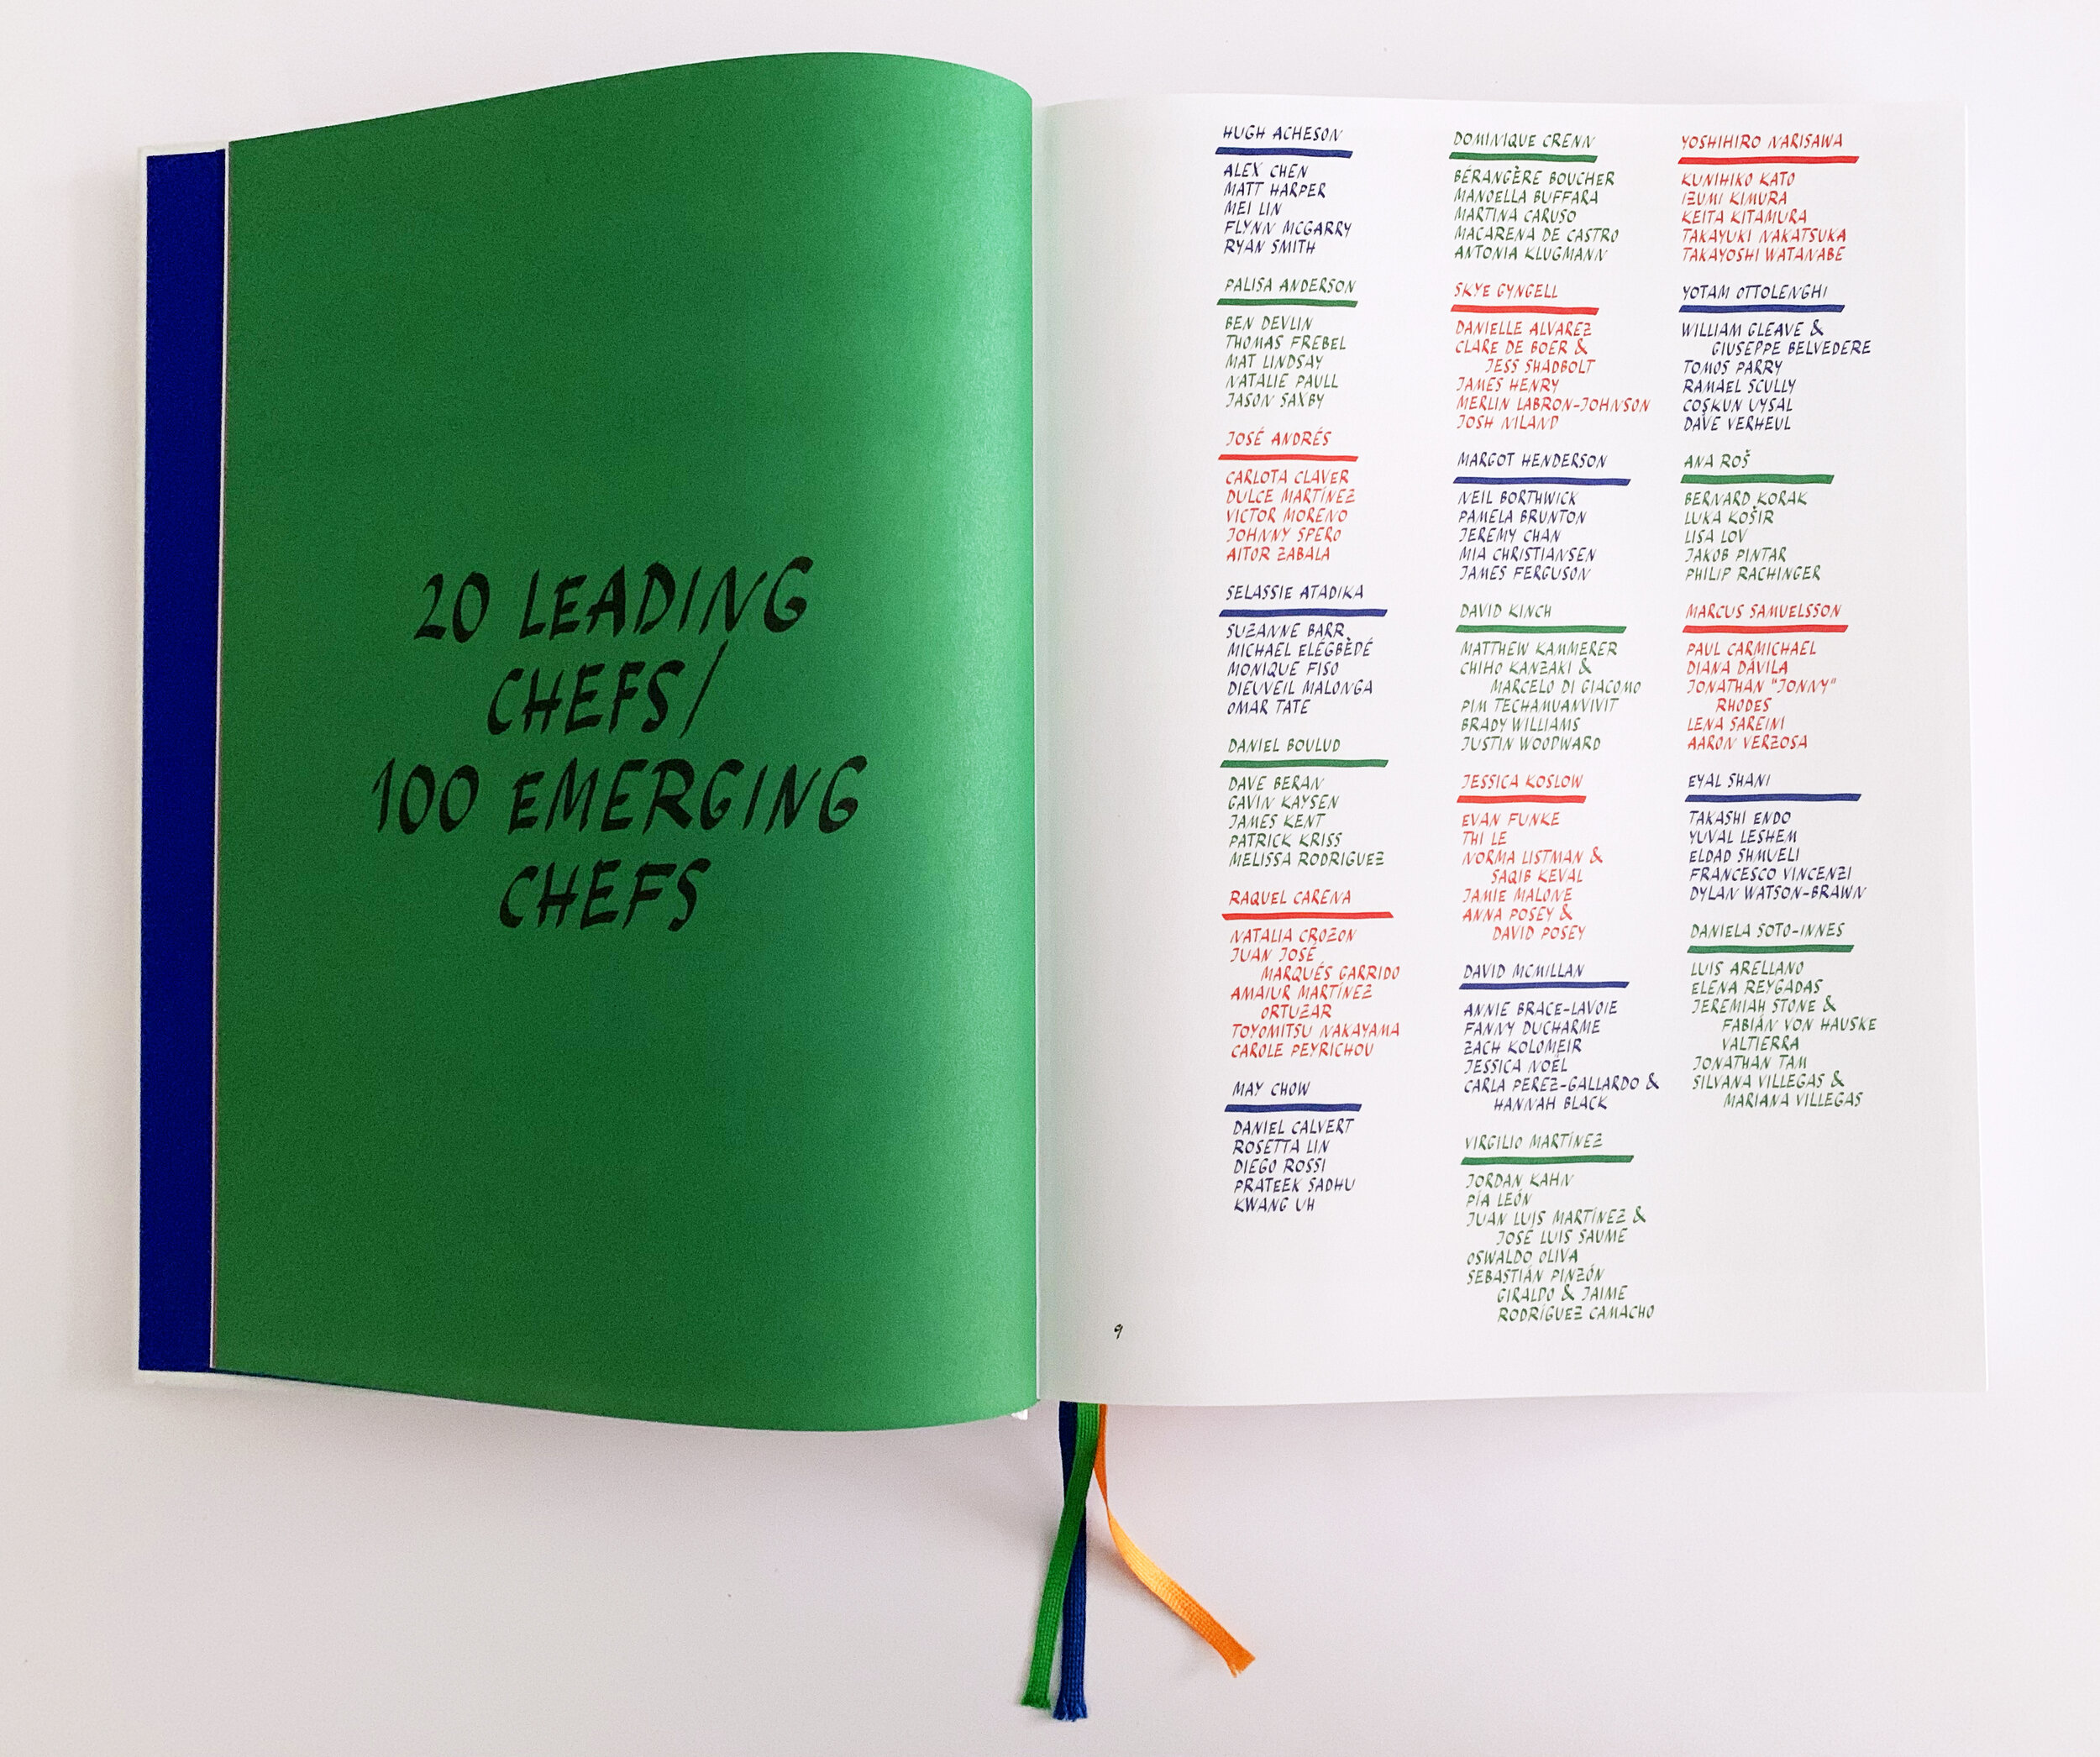 20 LEADING
CHEFS/
100 EMERGING
CHEFS
HUGH ACHESON
ALEX CHEN
MATT HARPER
MEI LIN
FLYNN MCGARRY
RYAN SMITH
PALISA ANDERSON
BEN DEVLIN
THOMAS FREBEL
MAT LINDSAY
NATALIE PAULL
JASON SAXBY
JOSÉ ANDRÉS
CARLOTA CLAVER
DULCE MARTÍNEZ
VICTOR MORENO
JOHNNY SPERO
AITOR ZABALA
SELASSIE ATADIKA
SUZANNE BARR
MICHAEL ELÉGBÈDÉ
MONIQUE FISO
DIEUVEIL MALONGA
OMAR TATE
DANIEL BOULUD
DAVE BERAN
GAVIN KAYSEN
JAMES KENT
PATRICK KRISS
MELISSA RODRIGUEZ
RAQUEL CARENA
NATALIA CROZON
JUAN JOSÉ
MARQUÉS GARRIDO
AMAIUR MARTÍNEZ
ORTUZAR
TOYOMITSU NAKAYAMA
CAROLE PEYRICHOU
MAY CHOW
DANIEL CALVERT
ROSETTA LIN
DIEGO ROSSI
PRATEEK SADHU
KWANG UH
DOMINIQUE CRENN
BÉRANGÈRE BOUCHER
MANOELLA BUFFARA
MARTINA CARUSO
MACARENA DE CASTRO
ANTONIA KLUGMANN
SKYE GYNGELL
DANIELLE ALVAREZ
CLARE DE BOER &
JESS SHADBOLT
JAMES HENRY
MERLIN LABRON-JOHNSON
JOSH NILAND
MARGOT HENDERSON
NEIL BORTHWICK
PAMELA BRUNTON
JEREMY CHAN
MIA CHRISTIANSEN
JAMES FERGUSON
DAVID KINCH
MATTHEW KAMMERER
CHIHO KANZAKI &
MARCELO DI GIACOMO
PIM TECHAMUANVIVIT
BRADY WILLIAMS
JUSTIN WOODWARD
JESSICA KOSLOW
EVAN FUNKE
THI LE
NORMA LISTMAN &
SAQIB KEVAL
JAMIE MALONE
ANNA POSEY &
DAVID POSEY
DAVID MCMILLAN
ANNIE BRACE-LAVOIE
FANNY DUCHARME
ZACH KOLOMEIR
JESSICA NOËL
CARLA PEREZ-GALLARDO &
HANNAH BLACK
VIRGILIO MARTÍNEZ
JORDAN KAHN
PÍA LEÓN
JUAN LUIS MARTÍNEZ &
JOSÉ LUIS SAUME
OSWALDO OLIVA
SEBASTIÁN PINZÓN
GIRALDO & JAIME
RODRÍGUEZ CAMACHO
YOSHIHIRO NARISAWA
KUNIHIKO KATO
IZUMI KIMURA
KEITA KITAMURA
TAKAYUKI NAKATSUKA
TAKAYOSHI WATANABE
YOTAM OTTOLENGHI
WILLIAM GLEAVE &
GIUSEPPE BELVEDERE
TOMOS PARRY
RAMAEL SCULLY
COŞKUN UYSAL
DAVE VERHEUL
ANA ROŠ
BERNARD KORAK
LUKA KOŠIR
LISA LOV
JAKOB PINTAR
PHILIP RACHINGER
MARCUS SAMUELSSON
PAUL CARMICHAEL
DIANA DÁVILA
JONATHAN "JONNY"
RHODES
LENA SAREINI
AARON VERZOSA
EYAL SHANI
TAKASHI ENDO
YUVAL LESHEM
ELDAD SHMUELI
FRANCESCO VINCENZI
DYLAN WATSON-BRAWN
DANIELA SOTO-INNES
LUIS ARELLANO
ELENA REYGADAS
JEREMIAH STONE &
FABIÁN VON HAUSKE
VALTIERRA
JONATHAN TAM
SILVANA VILLEGAS &
MARIANA VILLEGAS
9